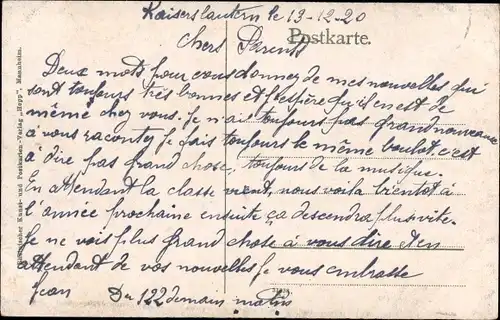 Kaiserslautern le 13-12-20
Postkarte.
chers Parents
Deux mots pour vous donner de mes nouvelles qui
sont toujours très bonnes et j'espère qu'il en est de
même chez vous. Je n'ai toujours pas grand nouveau
à vous raconter je fais toujours le même boulot c'est
à dire pas grand chose, toujours de la musique.
En attendant la classe vient, nous voila bientot à
l'année prochaine ensuite ça descendra plus vite.
Je ne vois plus grand chose à vous dire et en
attendant de vos nouvelles je vous embrasse
Jean Du 122 demain matin
Kunst- und Postkarten-Verlag „Hepp“, Mannheim.